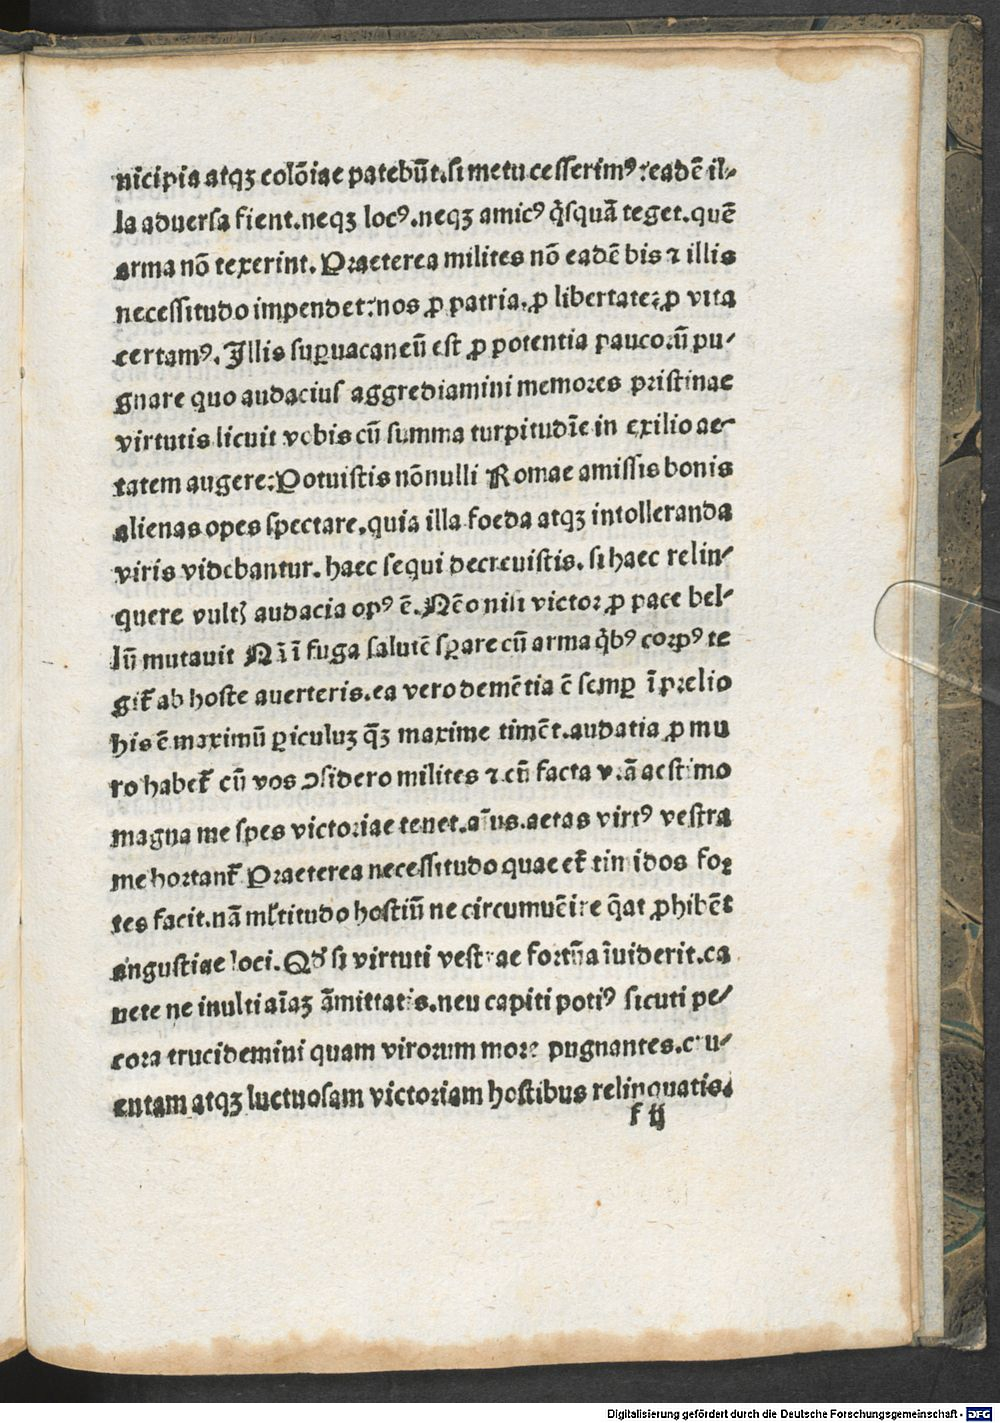 nicipia atqꝫ colōiae patebūt. si metu cesserimꝰ: eadē il⸗
la aduersa fient. neqꝫ locꝰ. neqꝫ amicꝰ q̇squā teget. quē
arma nō texerint. Praeterea milites nō eadē bis ⁊ illis
necessitudo impendet: nos ꝓ patria. ꝓ libertate: ꝓ vita
certamꝰ. Illis suꝑuacaneū est ꝓ potentia paucoꝛū pu⸗
gnare quo audacius aggrediamini memores pristinae
virtutis licuit vobis cū summa turpitudīe in exilio ae⸗
tatem augere: Potuistis nōnulli Romae amissis bonis
alienas opes spectare. quia illa foeda atqꝫ intolleranda
viris videbantur. haec sequi decreuistis. si haec relin⸗
quere vultꝭ audacia opꝰ ē. Nēo nisi victoꝛ ꝓ pace bel⸗
lū mutauit Nā ī fuga salutē sꝑare cū arma q̇bꝰ coꝛpꝰ te
git̄ ab hoste auerteris. ea vero demētia ē semꝑ ī pꝛelio
his ē maximū ꝑiculuꝫ q̄ꝫ maxime timēt. audatia ꝓ mu
ro habet̄ cū vos ↄsidero milites ⁊ cū facta vꝛ̄a aestimo
magna me spes victoꝛiae tenet. aīus. aetas virtꝰ vestra
me hortant̄ Praeterea necessitudo quae et̄ timidos foꝛ
tes facit. nā ml̄titudo hostiū ne circumuēire q̄at ꝓhibēt
angustiae loci. Qḋ si virtuti vestrae foꝛtūa īuiderit. ca
uete ne inulti aīaꝫ āmittatis. neu capiti potiꝰ sicuti pe⸗
coꝛa trucidemini quam viroꝛum moꝛe pugnantes. cru⸗
entam atqꝫ luctuosam victoꝛiam hostibus relinquatis.
f ij
Digitalisierung gefördert durch die Deutsche Forschungsgemeinschaft - DFG